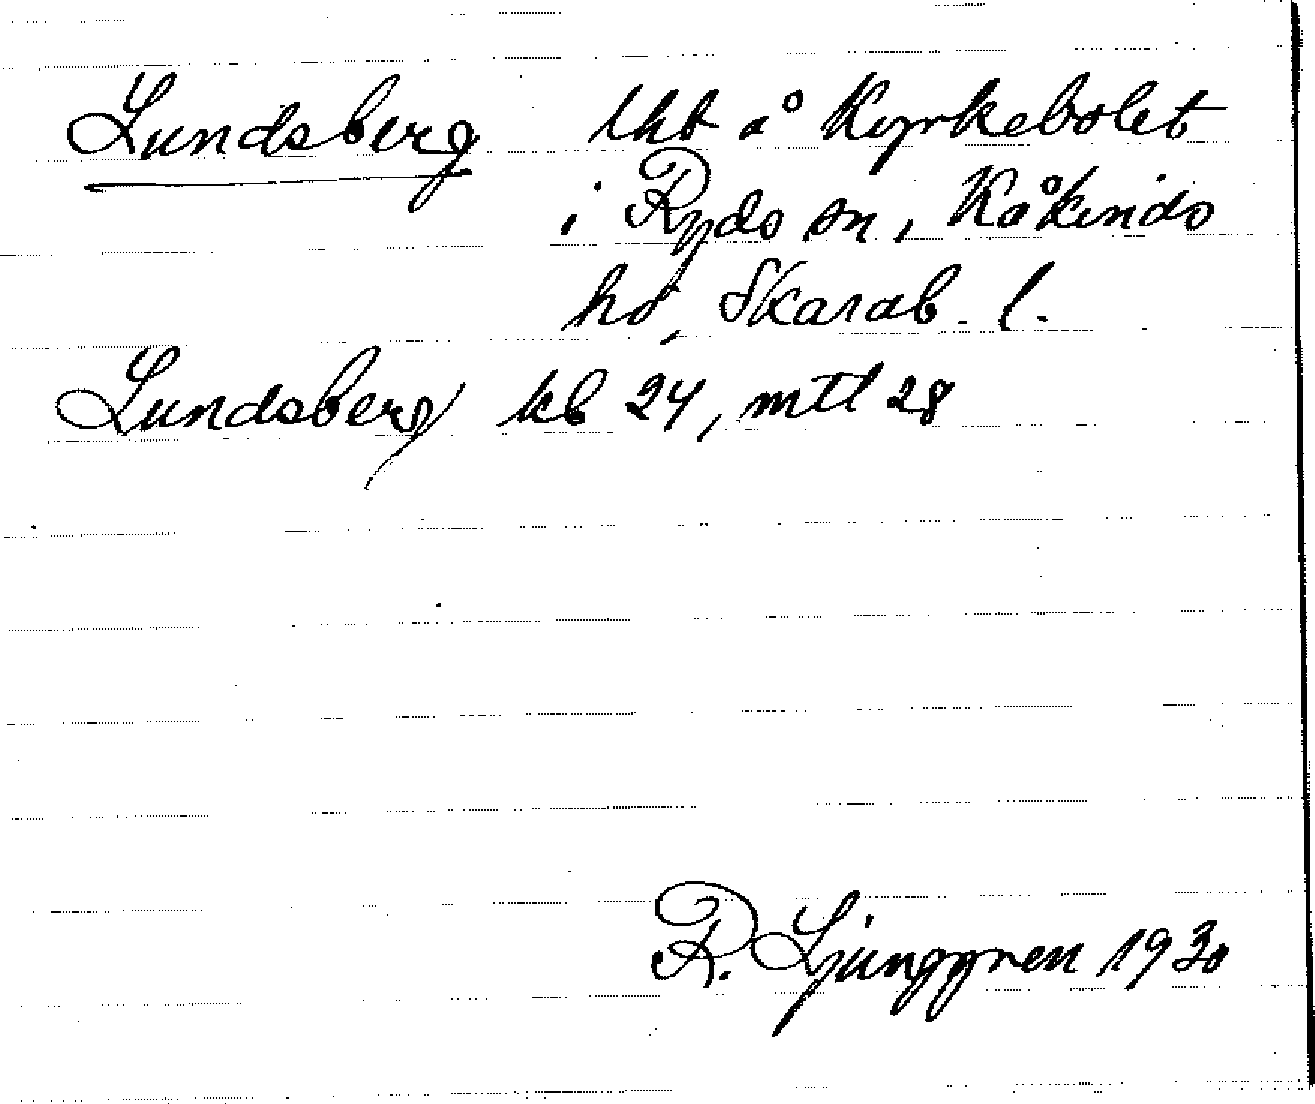 Lundsberg lht å Kyrkebolet
i Ryds sn, Kåkinds
hd, Skarab. l.
Lundsberg kb 24, mtl 28
R. Ljunggren 1930